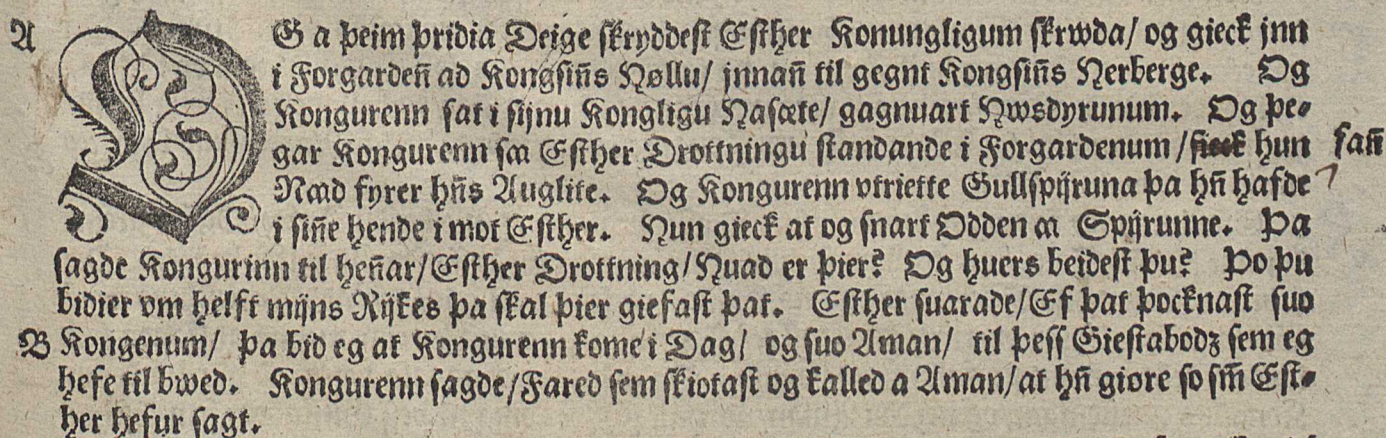 A OG a þeim þridia Deige ſkryddeſt Eſther Konungligum ſkrwda/ og gieck jnn
i Forgardeñ ad Kongſiñs Høllu/ jnnañ til gegnt Kongſiñs Herberge. Og
Kongurenn ſat i ſijnu Kongligu Haſæte/ gagnuart Hwsdyrunum. Og þe-
gar Kongurenn ſaa Eſther Drottningu ſtandande i Forgardenum/ fieck hun fañ
Naad fyrer hñs Auglite. Og Kongurenn vtriette Gullſpijruna þa hñ hafde
i ſiñe hende i mot Eſther. Hun gieck at og ſnart Odden aa Spijrunne. Þa
ſagde Kongurinn til heñar/ Eſther Drottning/ Huad er þier? Og huers beideſt þu? Þo þu
bidier vm helft mijns Rijkes þa ſkal þier giefaſt þat. Eſther ſuarade/ Ef þat þocknaſt ſuo
B Kongenum/ þa bid eg at Kongurenn kome i Dag/ og ſuo Aman/ til þeſſ Gieſtabodz ſem eg
hefe til bwed. Kongurenn ſagde/ Fared ſem ſkiotaſt og kalled a Aman/ at hñ giøre ſo ſm̃ Eſt-
her hefur ſagt.